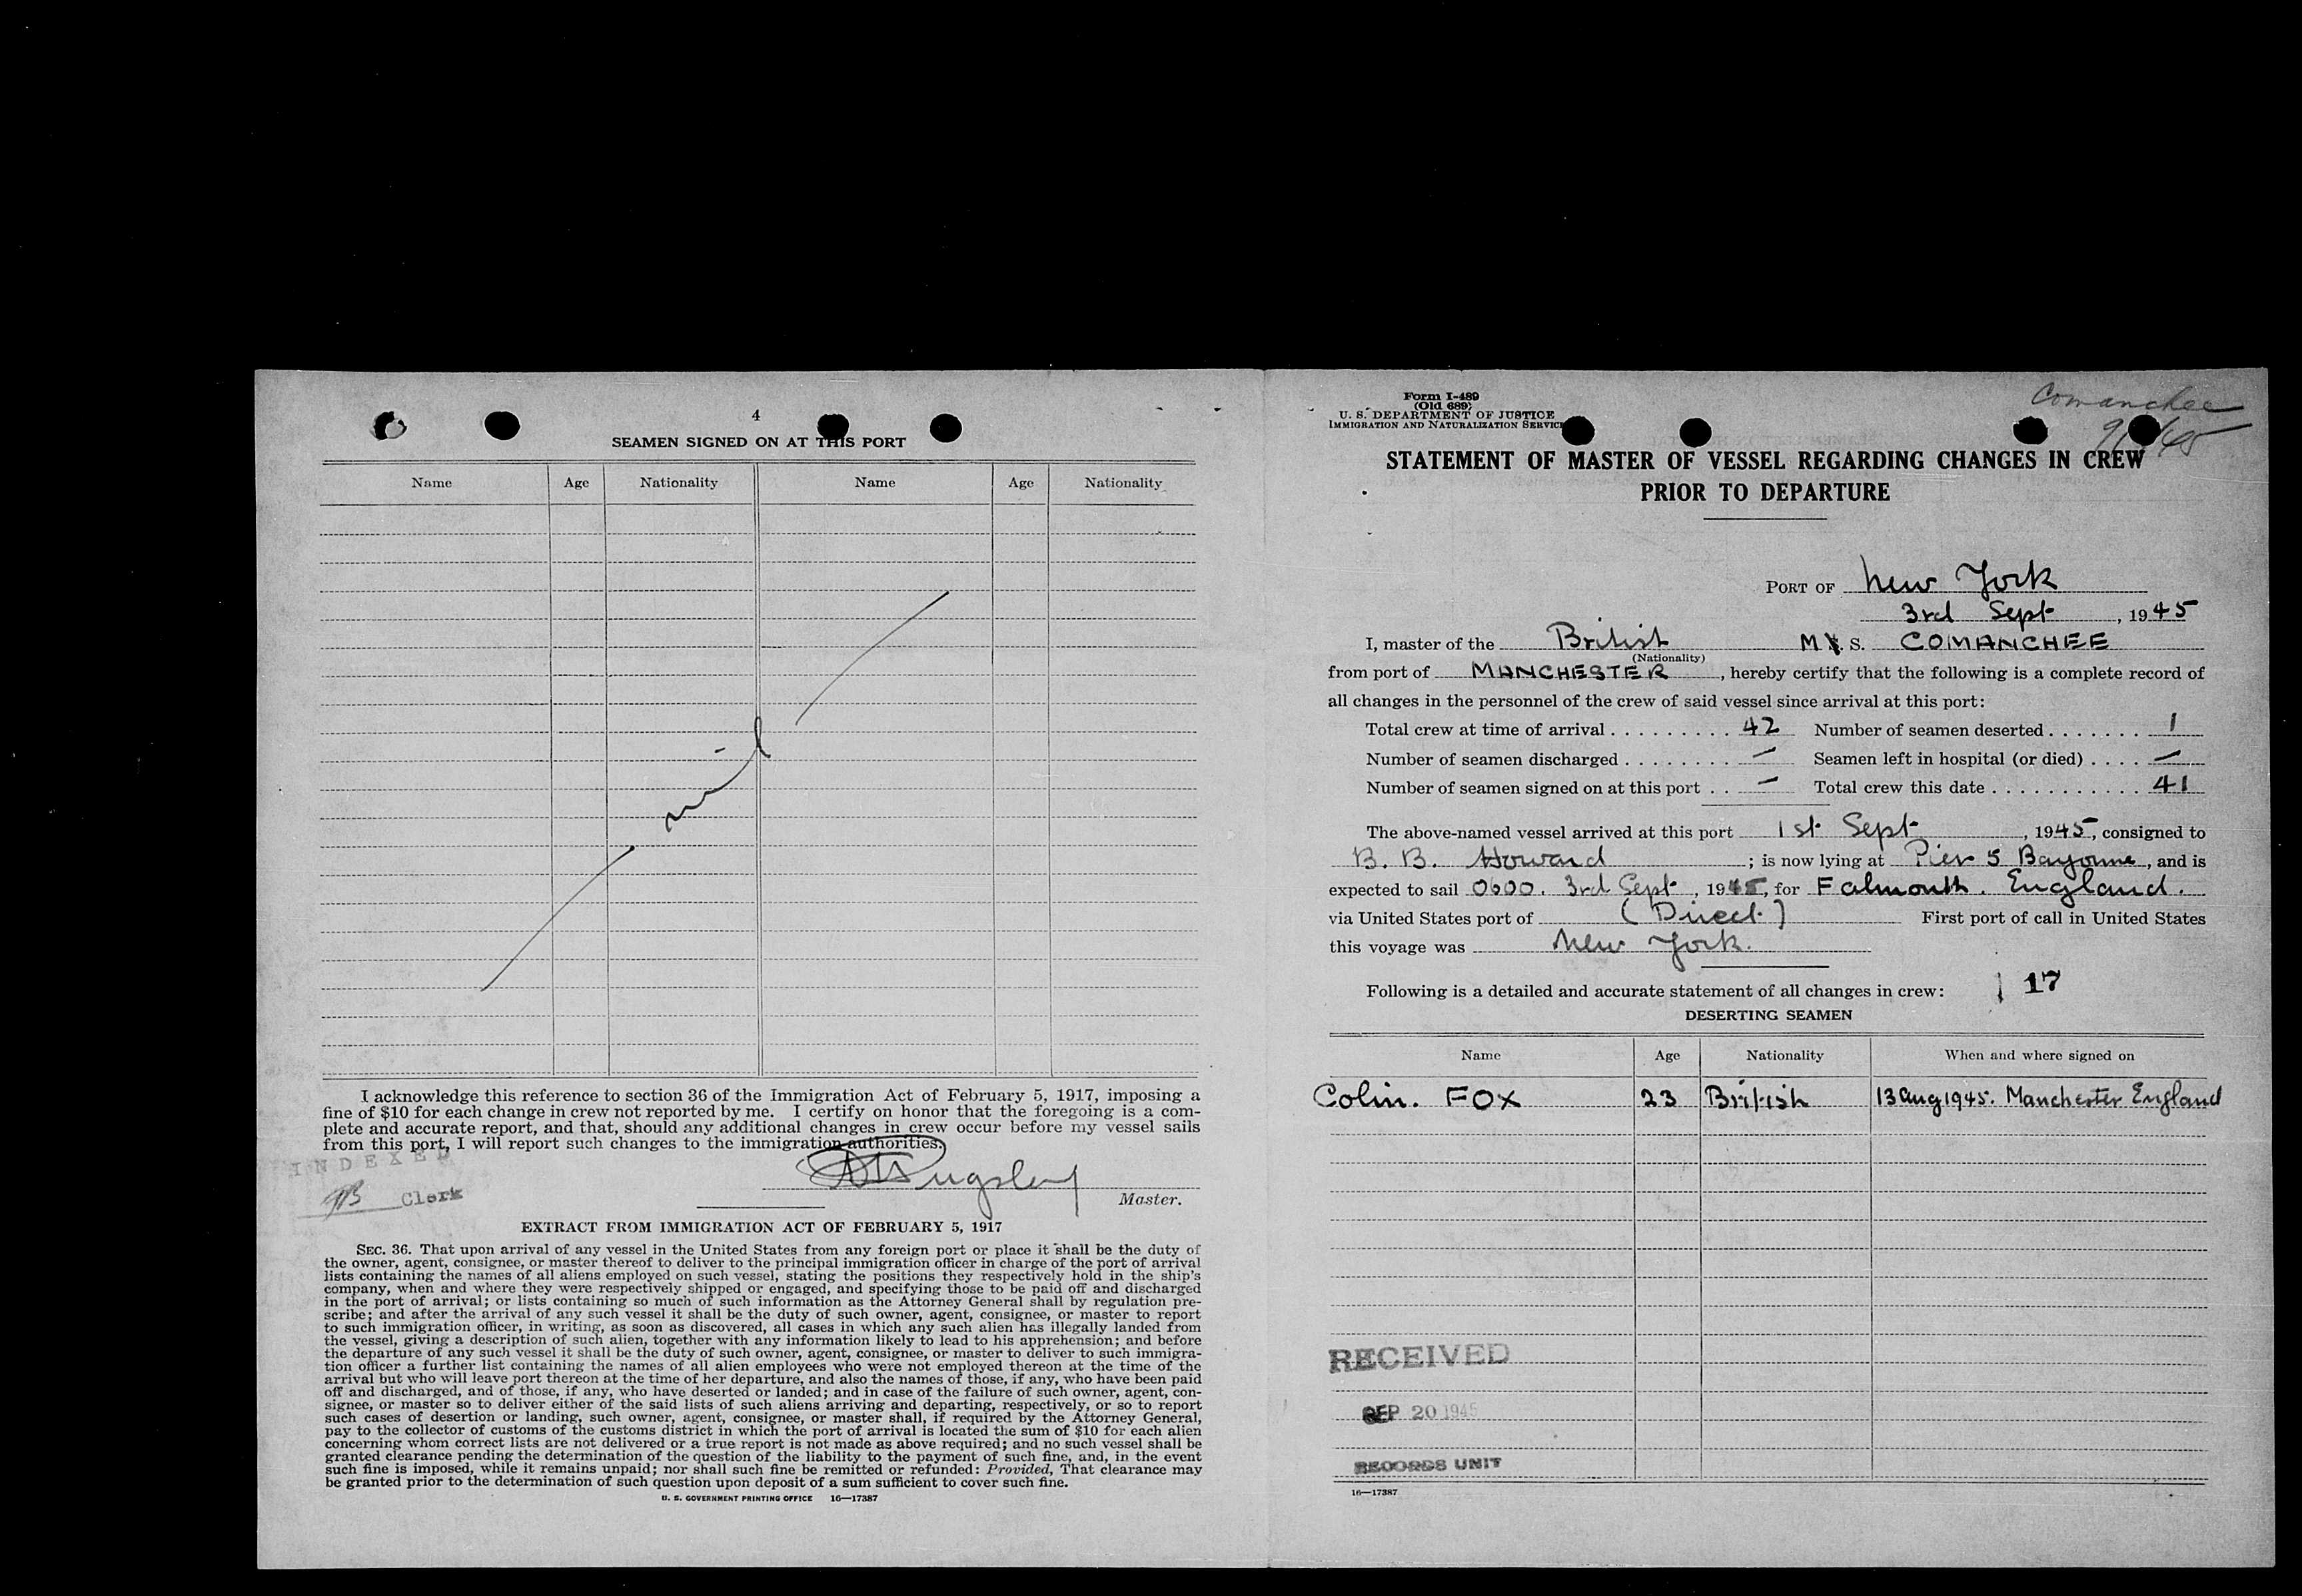 4
SEAMEN SIGNED ON AT THIS PORT
Name Age Nationality Name Age Nationality
nil
I acknowledge this reference to section 36 of the Immigration Act of February 5, 1917, imposing a
fine of $10 for each change in crew not reported by me. I certify on honor that the foregoing is a com-
plete and accurate report, and that, should any additional changes in crew occur before my vessel sails
from this port, I will report such changes to the immigration authorities.
INDEXED
Clerk
Pugsley
Master.
EXTRACT FROM IMMIGRATION ACT OF FEBRUARY 5, 1917
SEC. 36. That upon arrival of any vessel in the United States from any foreign port or place it shall be the duty of
the owner, agent, consignee, or master thereof to deliver to the principal immigration officer in charge of the port of arrival
lists containing the names of all aliens employed on such vessel, stating the positions they respectively hold in the ship's
company, when and where they were respectively shipped or engaged, and specifying those to be paid off and discharged
in the port of arrival; or lists containing so much of such information as the Attorney General shall by regulation pre-
scribe; and after the arrival of any such vessel it shall be the duty of such owner, agent, consignee, or master to report
to such immigration officer, in writing, as soon as discovered, all cases in which any such alien has illegally landed from
the vessel, giving a description of such alien, together with any information likely to lead to his apprehension; and before
the departure of any such vessel it shall be the duty of such owner, agent, consignee, or master to deliver to such immigra-
tion officer a further list containing the names of all alien employees who were not employed thereon at the time of the
arrival but who will leave port thereon at the time of her departure, and also the names of those, if any, who have been paid
off and discharged, and of those, if any, who have deserted or landed; and in case of the failure of such owner, agent, con-
signee, or master so to deliver either of the said lists of such aliens arriving and departing, respectively, or so to report
such cases of desertion or landing, such owner, agent, consignee, or master shall, if required by the Attorney General,
pay to the collector of customs of the customs district in which the port of arrival is located the sum of $10 for each alien
concerning whom correct lists are not delivered or a true report is not made as above required; and no such vessel shall be
granted clearance pending the determination of the question of the liability to the payment of such fine, and, in the event
such fine is imposed, while it remains unpaid; nor shall such fine be remitted or refunded: Provided, That clearance may
be granted prior to the determination of such question upon deposit of a sum sufficient to cover such fine.
U. S. GOVERNMENT PRINTING OFFICE 16—17387
Form I-489
(Old 689)
U. S. DEPARTMENT OF JUSTICE
IMMIGRATION AND NATURALIZATION SERVICE
Comanchee
STATEMENT OF MASTER OF VESSEL REGARDING CHANGES IN CREW
PRIOR TO DEPARTURE
PORT OF New York
3rd Sept, 1945
I, master of the British M. S. COMANCHEE
(Nationality)
from port of MANCHESTER, hereby certify that the following is a complete record of
all changes in the personnel of the crew of said vessel since arrival at this port:
Total crew at time of arrival . . . . . . . . . 42 Number of seamen deserted . . . . . . . 1
Number of seamen discharged . . . . . . . . — Seamen left in hospital (or died) . . . . —
Number of seamen signed on at this port . . — Total crew this date . . . . . . . . . . . 41
The above-named vessel arrived at this port 1st Sept, 1945, consigned to
B. B. Howard; is now lying at Pier 5 Bayonne, and is
expected to sail 0600. 3rd Sept, 1945, for Falmouth. England.
via United States port of (Direct) First port of call in United States
this voyage was New York.
Following is a detailed and accurate statement of all changes in crew: 17
DESERTING SEAMEN
Name Age Nationality When and where signed on
Colin. FOX 23 British 13 Aug 1945. Manchester England
RECEIVED
SEP 20 1945
RECORDS UNIT
16—17387